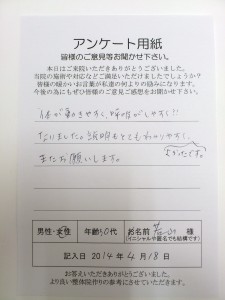 アンケート用紙
皆様のご意見等お聞かせ下さい。
本日はご来院いただきありがとうございました。
当院の施術や対応などご満足いただけましたでしょうか?
皆様の暖かいお言葉が私達の何よりの励みになります。
今後の為にもぜひ皆様のご意見ご感想をお聞かせ下さい。
体が動きやすく、呼吸がしやすく!!
なりました。説明もとてもわかりやすく、
よかったです。
またお願いします。
男性・女性 年齢 30代 お名前 様
(イニシャルや匿名でも結構です)
記入日 2014年 4月 18日
お答えいただきありがとうございました。
より良い整体院作りの参考にさせていただきます。